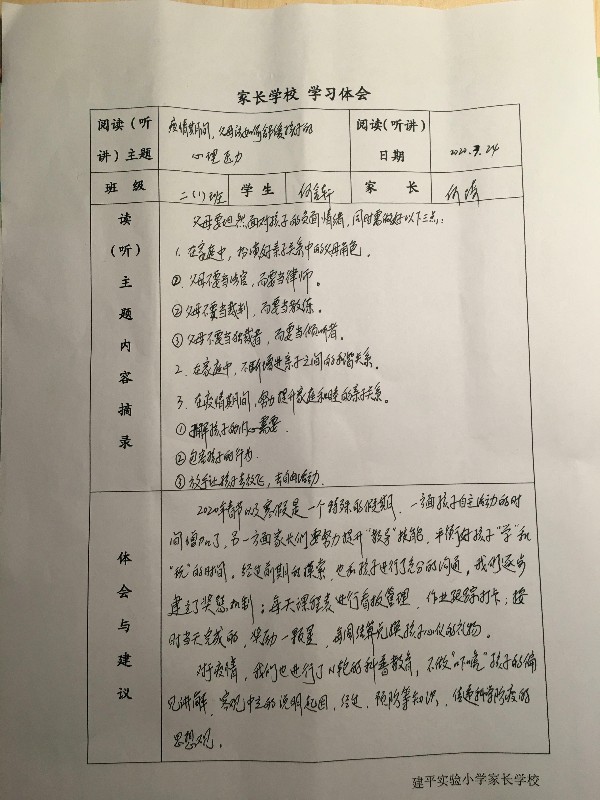 家长学校 学习体会
阅读（听讲）主题
疫情期间，父母该如何舒缓孩子的
心理压力
阅读（听讲）日期
2020.3.24
班 级
二（1）班
学生
何
家 长
何
读（听）主题内容摘录
父母要坦然面对孩子的负面情绪，同时需做好以下三点：
1. 在家庭中，扮演好亲子关系中的父母角色。
① 父母不要当法官，而要当律师。
② 父母不要当裁判，而要当教练。
③ 父母不要当独裁者，而要当倾听者。
2. 在家庭中，不断增进亲子之间的和谐关系。
3. 在疫情期间，努力提升家庭和睦的亲子关系。
① 理解孩子的内心需要.
② 包容孩子的行为.
③ 放手让孩子去放飞，去自由活动.
体会与建议
2020年春节以及寒假是一个特殊的假期，一方面孩子自主活动的时
间增加了，另一方面家长们要努力提升“教导”技能，平衡好孩子“学”和
“玩”的时间。经过前期和摸索，也和孩子进行了充分的沟通，我们逐步
建立了奖惩机制；每天课程表进行看板管理，作业跟踪打卡；按
时当天完成的，奖励一颗星，每周结算兑换孩子心仪的礼物。
对于疫情，我们也进行了的科普教育，不做“吓唬”孩子的偏
见讲解，客观中立的说明起因，经过，预防等知识，传递科学防疫的
思想观。
建平实验小学家长学校